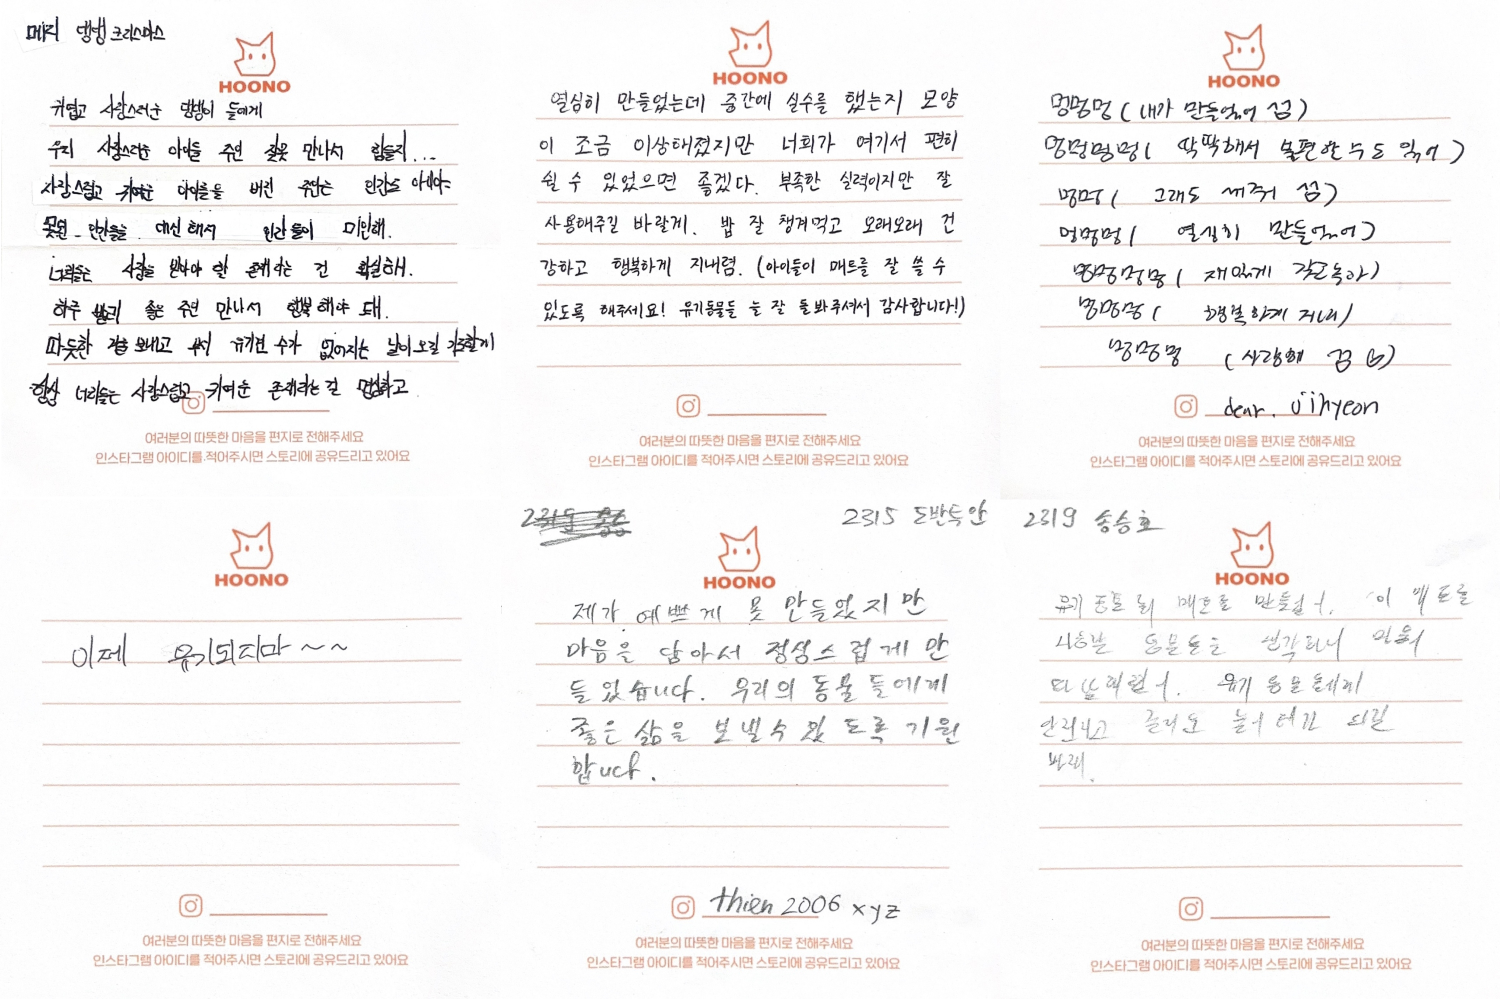 메리 댕댕 크리스마스
HOONO
귀엽고 사랑스러운 댕댕이 들에게
우리 사랑스러운 아이들 주인 잘못 만나서 힘들지...
사랑스럽고 귀여운 아이들을 버린 주인는 인간도 아니야
못된 인간들을 대신해서 인간들이 미안해.
너희들은 사랑을 받아야 할 존재라는 건 확실해.
하루 빨리 좋은 주인 만나서 행복해야 돼.
따듯한 겨울 보내고 유기견 수가 없어지는 날이 오길 기도할게
항상 너희들은 사랑스럽고 귀여운 존재라는걸 명심하고
여러분의 따뜻한 마음을 편지로 전해주세요
인스타그램 아이디를 적어주시면 스토리에 공유드리고 있어요
HOONO
열심히 만들었는데 중간에 실수를 했는지 모양
이 조금 이상해졌지만 너희가 여기서 편히
쉴 수 있었으면 좋겠다. 부족한 실력이지만 잘
사용해주길 바랄게. 밥 잘 챙겨먹고 오래오래 건
강하고 행복하게 지내렴. (아이들이 매트를 잘 쓸 수
있도록 해주세요! 유기동물들 늘 잘 돌봐주셔서 감사합니다!)
여러분의 따뜻한 마음을 편지로 전해주세요
인스타그램 아이디를 적어주시면 스토리에 공유드리고 있어요
HOONO
멍멍멍 ( 내가 만들었어 꼼 )
멍멍멍멍 ( 딱딱해서 불편할수도 있어 )
멍멍 ( 그래도 써줘 꼼 )
멍멍멍 ( 열심히 만들었어 )
멍멍멍멍 ( 재밌게 갖고놀아 )
멍멍멍 ( 행복하게 지내 )
멍멍멍 ( 사랑해 꼼 )
dear. Jihyeon
여러분의 따뜻한 마음을 편지로 전해주세요
인스타그램 아이디를 적어주시면 스토리에 공유드리고 있어요
HOONO
이제 유기되지마~~
여러분의 따뜻한 마음을 편지로 전해주세요
인스타그램 아이디를 적어주시면 스토리에 공유드리고 있어요
2315 도반득안
HOONO
제가 예쁘게 못 만들었지만
마음을 담아서 정성스럽게 만
들었습니다. 우리의 동물들에게
좋은 삶을 보낼수 있도록 기원
합니다.
thien2006xyz
여러분의 따뜻한 마음을 편지로 전해주세요
인스타그램 아이디를 적어주시면 스토리에 공유드리고 있어요
2319 송승호
HOONO
유기동물의 매트를 만들었어. 이 매트를
사용할 동물들을 생각하니
유기동물들에게
바래.
여러분의 따뜻한 마음을 편지로 전해주세요
인스타그램 아이디를 적어주시면 스토리에 공유드리고 있어요